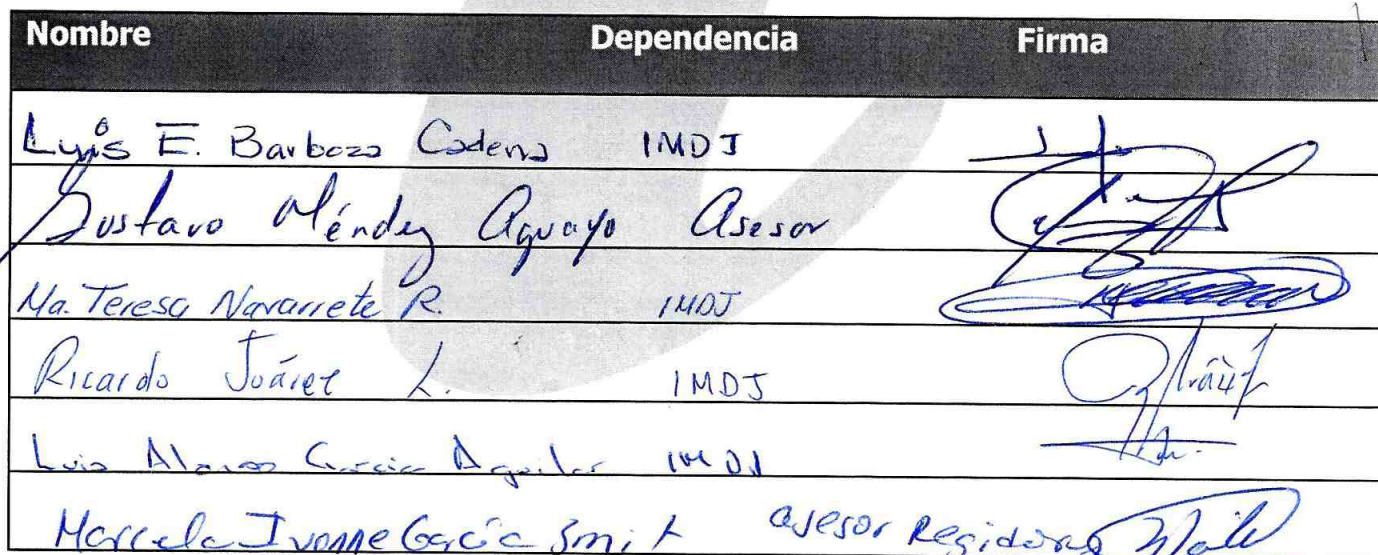 Nombre Dependencia Firma
Luis E. Barboza Cadena IMDJ
Gustavo Méndez Aguayo Asesor
Ma. Teresa Navarrete R. IMDJ
Ricardo Juárez L. IMDJ
Luis Alonso Garcia Aguilar IMDJ
Marcela Ivonne García Smit asesor Regidores